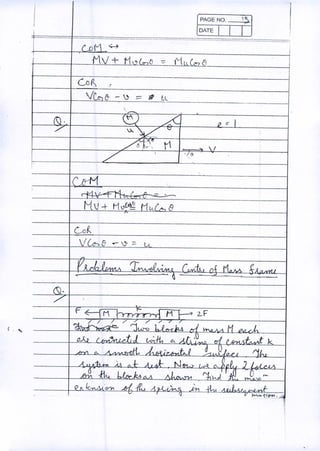 PAGE NO.
DATE
COM ↔
MV + Mv Cosθ = Mu Cosθ
COR,
VCosθ - v = u
Q.
M
u
θ
e = 1
M
V
COM
MV + MuCosθ =
MV + Mv Cosθ = MuCosθ
COR
VCosθ - v = u
Problems Involving Centre of Mass Frame
Q.
F M K M 2F
Two blocks of mass M each
are connected with a string of constant k
on a smooth horizontal surface. The
system is at rest. Now we apply 2 forces
on the blocks as shown. Find the max
extension of the spring in the subsequent
motion.